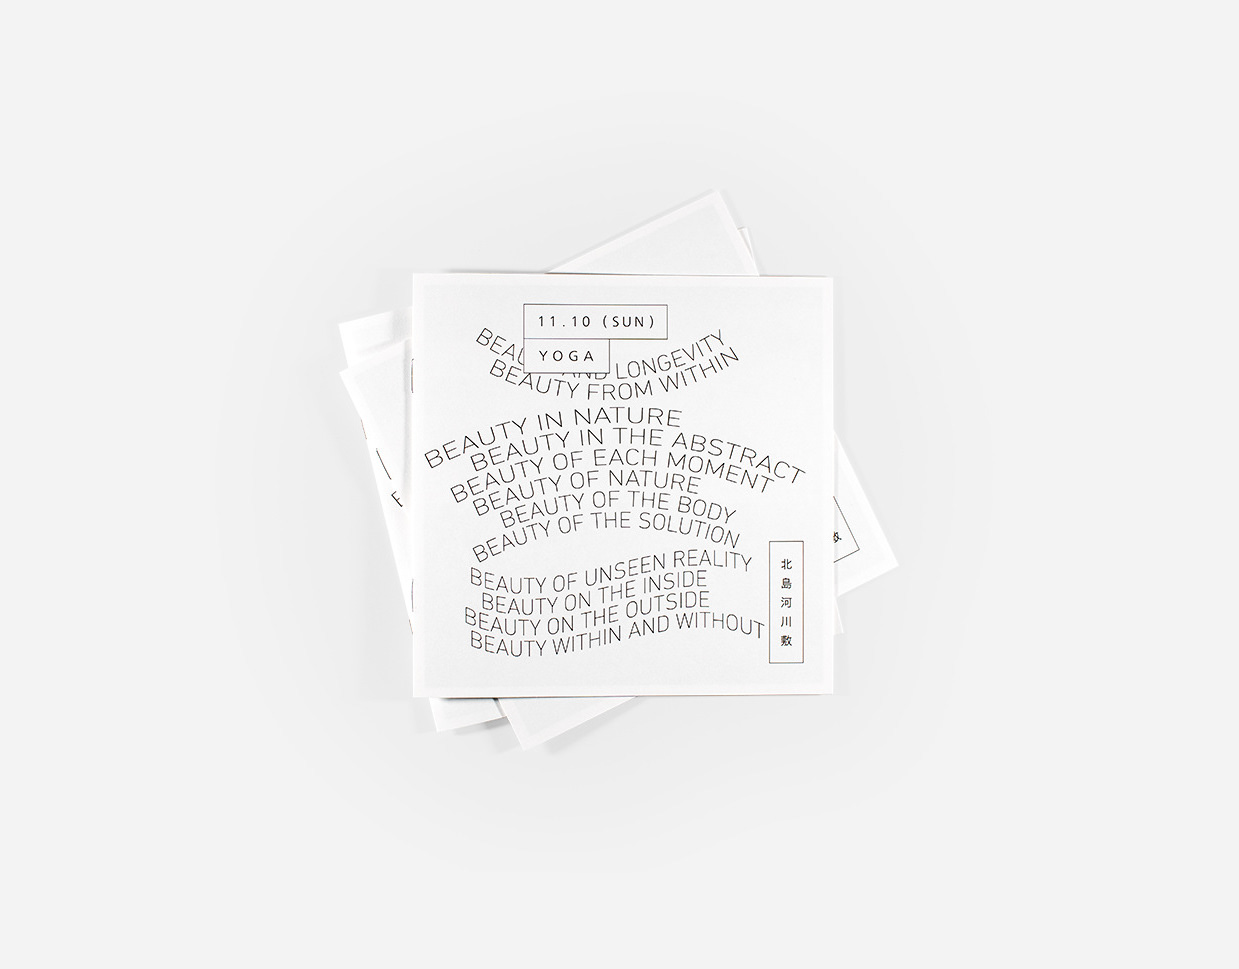 11.10 (SUN)
YOGA
AND LONGEVITY
BEAUTY FROM WITHIN
BEAUTY IN NATURE
BEAUTY IN THE ABSTRACT
BEAUTY OF EACH MOMENT
BEAUTY OF NATURE
BEAUTY OF THE BODY
BEAUTY OF THE SOLUTION
BEAUTY OF UNSEEN REALITY
BEAUTY ON THE INSIDE
BEAUTY ON THE OUTSIDE
BEAUTY WITHIN AND WITHOUT
北島河川敷